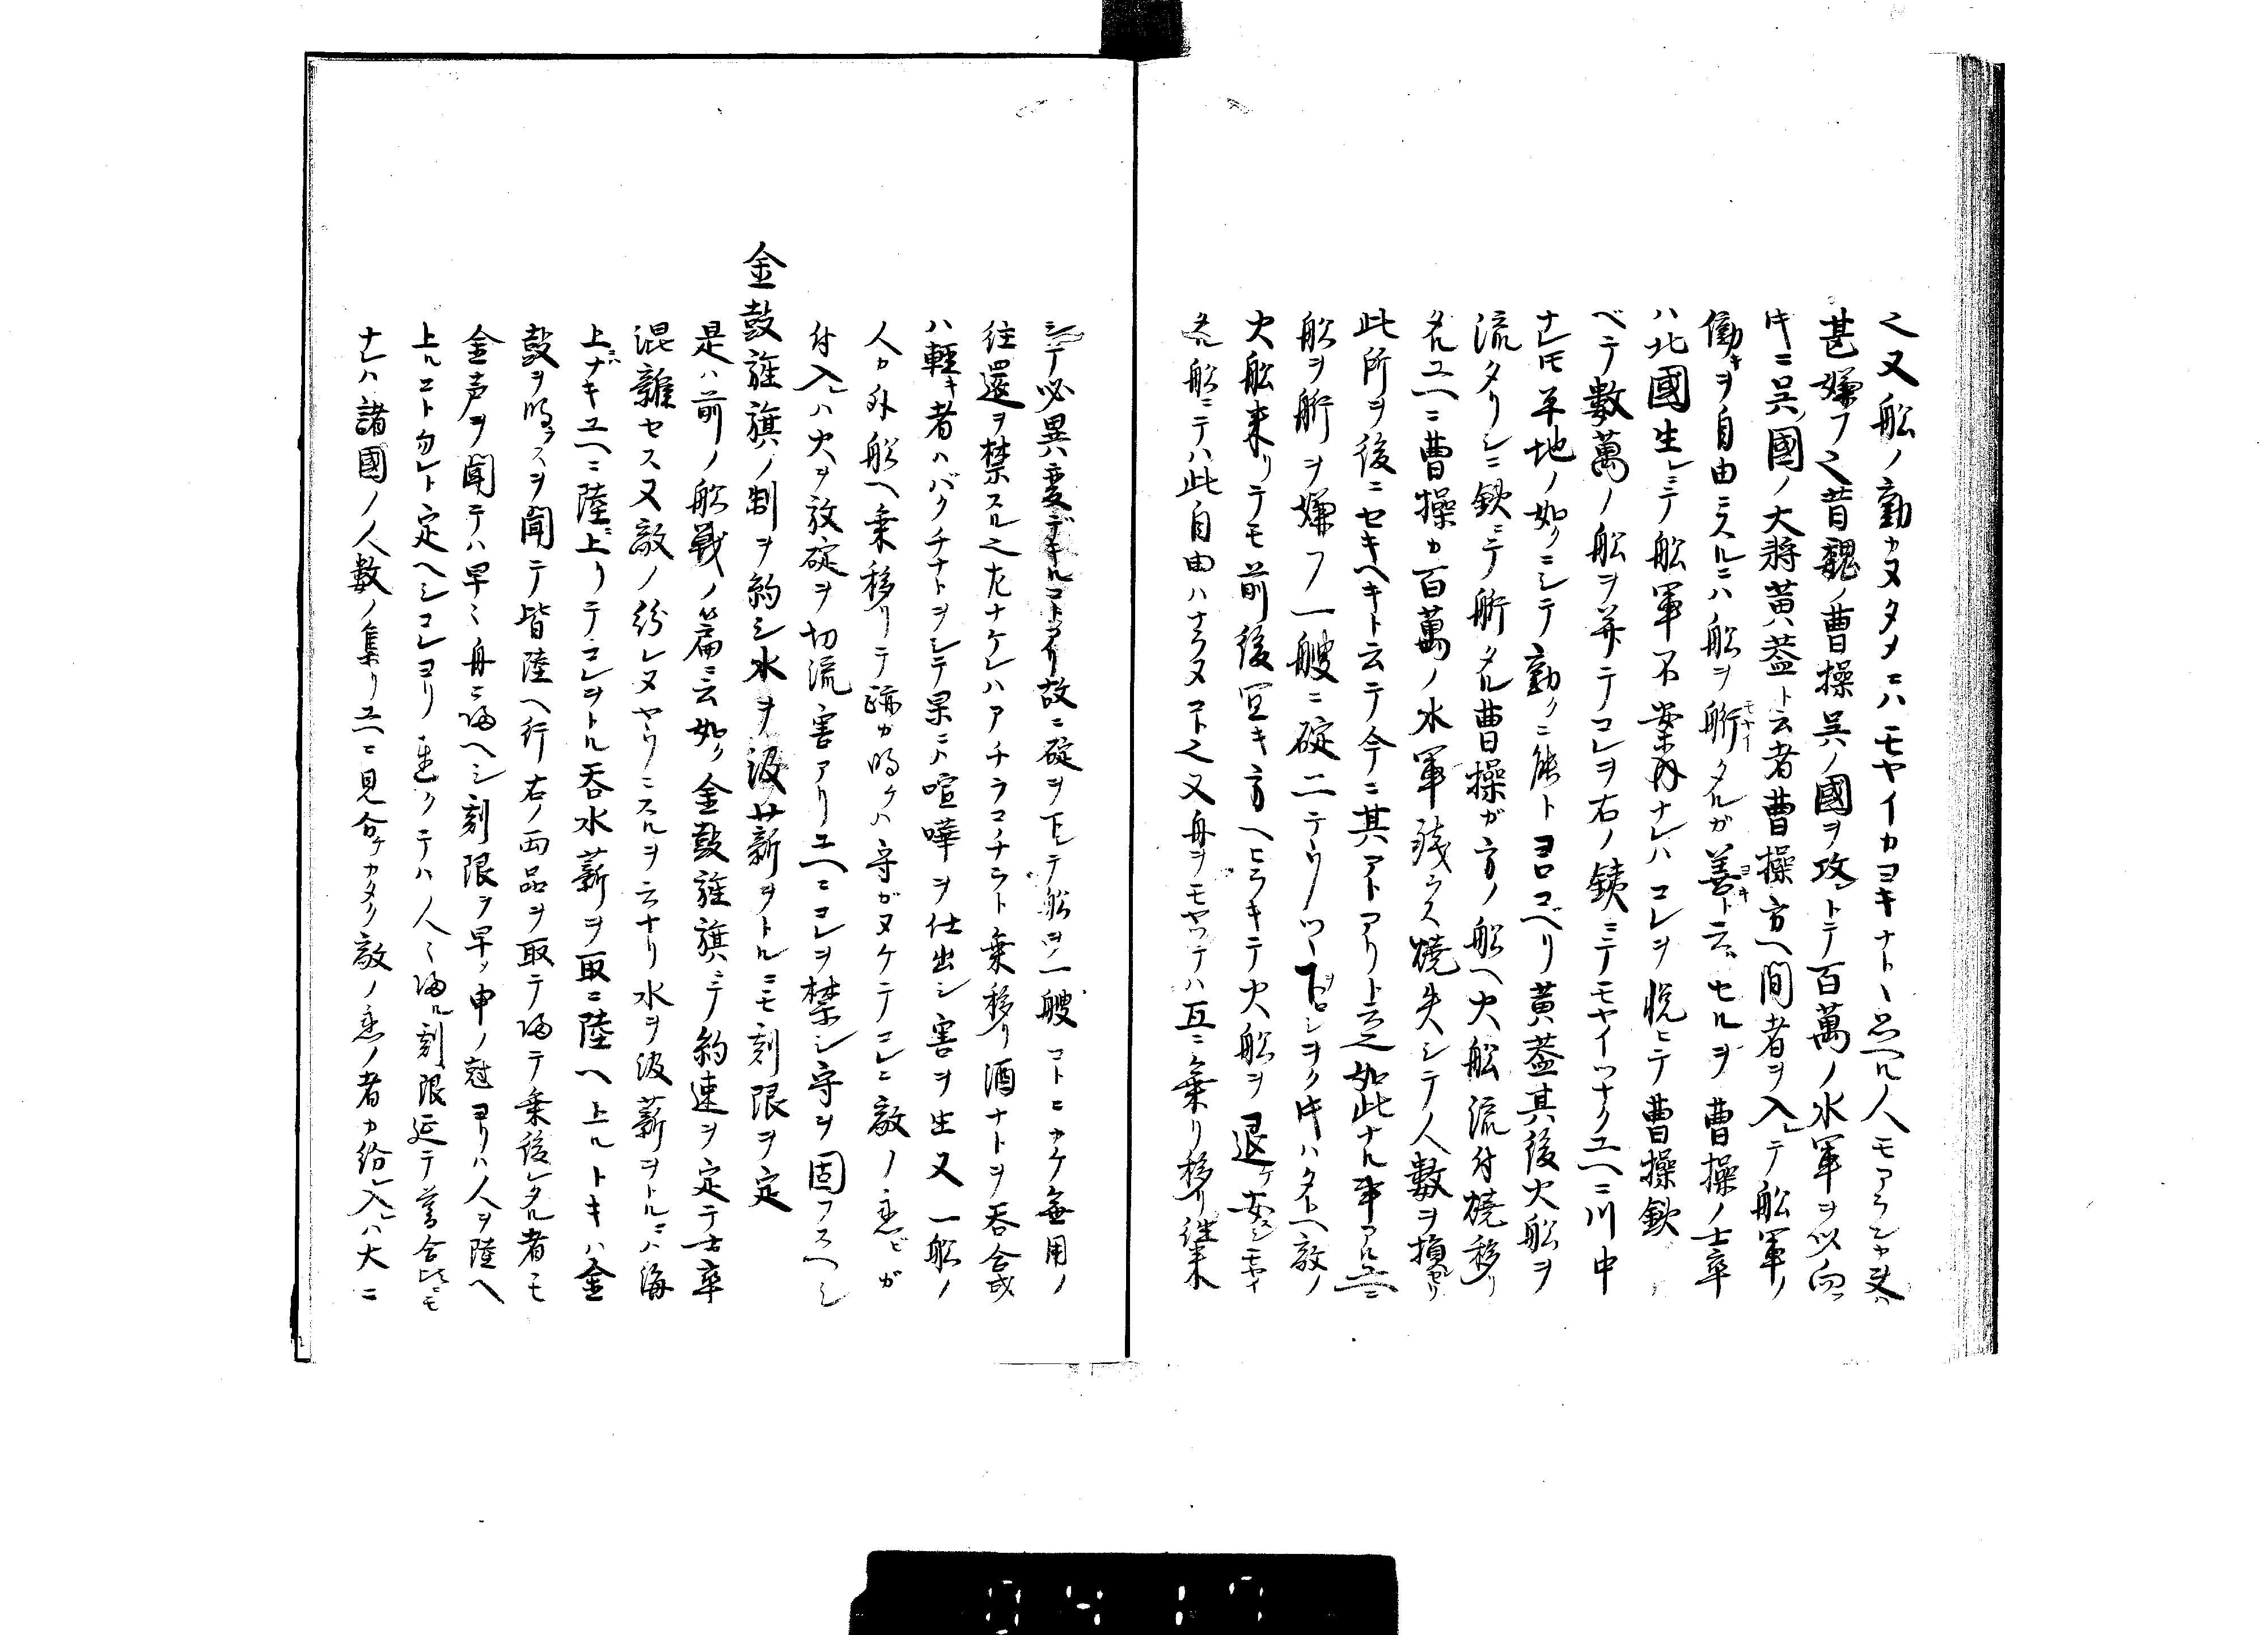 之又船ノ動カヌタメニハモヤイカヨキナト丶思ヘル人モアランカ夫ハ
甚嫌フ之昔魏ノ曹操呉ノ國ヲ攻ントテ百萬ノ水軍ヲ以向フ
片ニ呉ノ國ノ大將黄葢ト云者曹操方ヘ間者ヲ入レテ船軍ノ
働キヲ自由ニスルニハ船ヲ舫モヤイタルガ善ヨキト云ハセルヲ曹操ノ士卒
ハ北國生レニテ船軍不案内ナレハコレヲ悦ヒテ曹操鉄
ベテ數萬ノ船ヲ并テコレヲ右ノ銕ニテモヤイツナクユヘニ川中
ナレ𪜈平地ノ如クニシテ動クニ能トヨロコベリ黄葢其後火船ヲ
流タリシニ鉄ニテ舫タル曹操ガ方ノ船ヘ火船流付焼移リ
タルユヘニ曹操カ百萬ノ水軍残ラス焼失シテ人數ヲ損セリ
此所ヲ後ニセキヘキト云テ今ニ其アトアリト云之如此ナル事アルユヘニ
船ヲ舫ヲ嫌フノ一艘ニ碇二テウツヽ下ヲロシヲク片ハタトヘ敵ノ
火船来リテモ前後冝キ方ヘヒラキテ火船ヲ退ケ安シモヤイ
タル船ニテハ此自由ハナラヌコト之又舟ヲモヤツテハ互ニ乗リ移リ往来
シテ必異変デキルコトアリ故ニ碇ヲ下シテ船ヲ一艘コトニカケ無用ノ
往還ヲ禁スル之左ナケレハアチラコチラト乗移リ酒ナトヲ呑合或
ハ軽キ者ハバクチナトヲシテ果ニハ喧嘩ヲ仕出シ害ヲ生又一船ノ
人カ外船ヘ乗移リテ跡カ明ケハ守ガヌケテコレニ敵ノ忍ビガ
付入レハ火ヲ放碇ヲ切流害アリユヘニコレヲ禁シ守ヲ固フスヘシ
金鼓旌旗ノ制ヲ約シ水ヲ汲廾薪ヲトルニモ刻限ヲ定
是ハ前ノ船戰ノ篇ニ云如ク金鼓旌旗ニテ約速ヲ定テ士卒
混雜セス又敵ノ紛レヌヤウニスルヲ云ナリ水ヲ汲薪ヲトルニハ海
上ニナキユヘニ陸ニ上リテコレヲトル呑水薪ヲ取ニ陸ヘ上ルトキハ金
鼓ヲ鳴ラスヲ聞テ皆陸ヘ行右ノ両品ヲ取テ帰テ乗後レタル者モ
金声ヲ聞テハ早々舟ニ帰ヘシ刻限ヲ早メ申ノ尅ヨリハ人ヲ陸ヘ
上ルコト勿レト定ヘシコレヨリ遅クテハ人々帰ル刻限延テ暮合ニモ
ナレハ諸國ノ人數ノ集リユヘニ見合ケカタク敵ノ忍ノ者カ紛レ入レハ大ニ